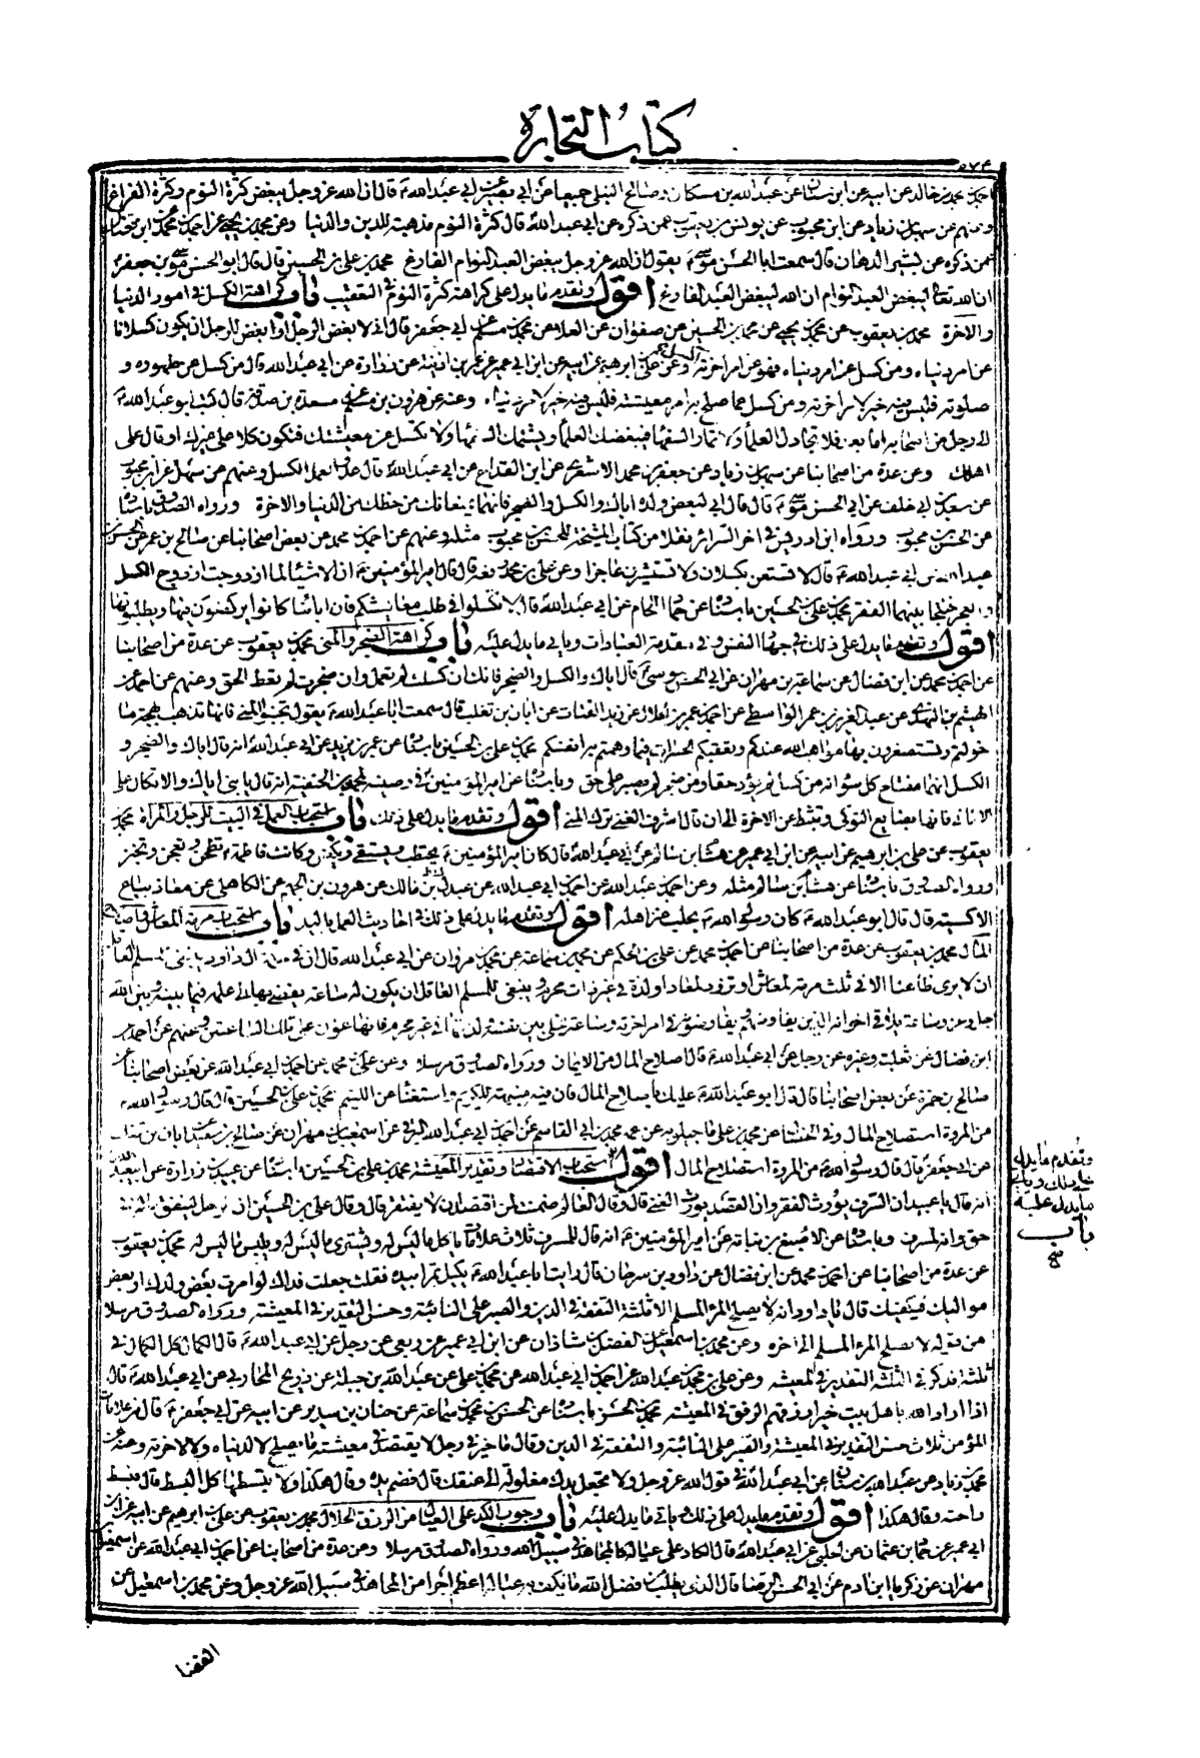 كتاب التجارة
٥٧٤
احمد بن محمد بن خالد عن ابيه عن ابن سنان عن عبد الله بن مسكان وصالح النيلي جميعا عن ابي عبد الله ع قال ان الله عز وجل يبغض كثرة النوم وكثرة الفراغ
وعنهم عن سهل بن زياد عن ابن محبوب عن يونس بن يعقوب عمن ذكره عن ابي عبد الله قال كثرة النوم مذهبة للدين والدنيا وعن محمد بن يحيى عن احمد بن محمد
عمن ذكره عن بشير الدهان قال سمعت ابا الحسن موسى ع يقول ان الله عز وجل يبغض العبد النوام الفارغ محمد بن علي بن الحسين قال قال ابو الحسن موسى بن جعفر
ان الله تعالى ليبغض العبد النوام ان الله ليبغض العبد الفارغ اقول وتقدم ما يدل على كراهة كثرة النوم في التعقيب باب كراهة الكسل في امور الدنيا
والاخرة محمد بن يعقوب عن محمد بن يحيى عن محمد بن الحسين عن صفوان عن العلا عن محمد بن مسلم عن ابي جعفر قال اني لابغض الرجل او ابغض للرجل ان يكون كسلانا
عن امر دنياه ومن كسل عن امر دنياه فهو عن امر اخرته اكسل وعن علي بن ابرهيم عن ابيه عن ابن ابي عمير عن عمر بن اذينة عن زرارة عن ابي عبد الله قال من كسل عن طهوره و
صلوته فليس فيه خير لامر اخرته ومن كسل عما يصلح به امر معيشته فليس فيه خير لامر دنياه وعنه عن هرون بن مسلم عن مسعدة بن صدقة قال كتب ابو عبد الله ع
الى رجل من اصحابه اما بعد فلا تجادل العلماء ولا تمار السفهاء فيبغضك العلماء ويشتمك السفهاء ولا تكسل عن معيشتك فتكون كلا على غيرك او قال على
اهلك وعن عدة من اصحابنا عن سهل بن زياد عن جعفر بن محمد الاشعري عن ابن القداح عن ابي عبد الله قال عدو العمل الكسل وعنهم عن سهل عن ابن محبوب
عن سعد بن ابي خلف عن ابي الحسن موسى ع قال قال ابي لبعض ولده اياك والكسل والضجر فانهما يمنعانك من حظك من الدنيا والاخرة ورواه الصدوق باسناده
عن الحسن بن محبوب ورواه ابن ادريس في اخر السرائر نقلا من كتاب المشيخة للحسن بن محبوب مثله وعنهم عن احمد بن محمد عن بعض اصحابنا عن صالح بن عمر عن الحسن بن
عبد الله عن ابي عبد الله ع قال لا تستعن بكسلان ولا تستشيرن عاجزا وعن علي بن محمد رفعه قال قال امير المؤمنين ع ان الاشياء لما ازدوجت ازدوج الكسل
والعجز فنتجا بينهما الفقر محمد بن علي بن الحسين باسناده عن حماد اللحام عن ابي عبد الله قال لا تكسلوا في طلب معايشكم فان اباءنا كانوا يركضون فيها ويطلبونها
اقول وتقدم ما يدل على ذلك في جهاد النفس وفي مقدمة العبادات وياتي ما يدل عليه باب كراهة الضجر والمنى محمد بن يعقوب عن عدة من اصحابنا
عن احمد بن محمد عن ابن فضال عن سماعة بن مهران عن ابي الحسن موسى ع قال اياك والكسل والضجر فانك ان كسلت لم تعمل وان ضجرت لم تعط الحق وعنهم عن احمد عن
الهيثم النهدي عن عبد العزيز بن عمر الواسطي عن احمد بن عمر الحلال عن زيد القتات عن ابان بن تغلب قال سمعت ابا عبد الله ع يقول تجنبوا المنى فانها تذهب بهجة ما
خولتم وتستصغرون بها مواهب الله عندكم وتعقبكم الحسرات فيما وهمتم به انفسكم محمد بن علي بن الحسين باسناده عن عمر بن يزيد عن ابي عبد الله انه قال اياك والضجر و
الكسل انهما مفتاح كل سوء انه من كسل لم يؤد حقا ومن ضجر لم يصبر على حق وباسناده عن امير المؤمنين ع في وصيته لمحمد بن الحنفية انه قال يا بني اياك والاتكال على
الاماني فانها بضايع النوكى وتثبط عن الاخرة الى ان قال اشرف الغنى ترك المنى اقول وتقدم ما يدل على ذلك باب استحباب العمل في البيت للرجل والمراة محمد
يعقوب عن علي بن ابرهيم عن ابيه عن ابن ابي عمير عن هشام بن سالم عن ابي عبد الله قال كان امير المؤمنين ع يحتطب ويستقي ويكنس وكانت فاطمة ع تطحن وتعجن وتخبز
ورواه الصدوق باسناده عن هشام بن سالم مثله وعن احمد بن عبد الله عن احمد بن ابي عبد الله عن عبدل بن مالك عن هرون بن الجهم عن الكاهلي عن معاذ بياع
الاكسية قال قال ابو عبد الله ع كان رسول الله ع يحلب عنز اهله اقول وتقدم ما يدل على ذلك في احاديث العمل باليد باب استحباب مرمة المعاش واصلاح
المال محمد بن يعقوب عن عدة من اصحابنا عن احمد بن محمد عن علي بن الحكم عن محمد بن سماعة عن محمد بن مروان عن ابي عبد الله قال ان في حكمة ال داود ينبغي للمسلم العاقل
ان لا يرى ظاعنا الا في ثلث مرمة لمعاش او تزود لمعاد او لذة في غير ذات محرم وينبغي للمسلم العاقل ان يكون له ساعة يفضي بها الى عمله فيما بينه وبين الله
ابن فضال عن ثعلبة وغيره عن رجل عن ابي عبد الله ع قال اصلاح المال من الايمان ورواه الصدوق مرسلا وعن علي بن محمد عن احمد بن ابي عبد الله عن بعض اصحابنا عن
صالح بن حمزة عن بعض اصحابنا قال قال ابو عبد الله ع عليك باصلاح المال فان فيه منبهة للكريم واستغناء عن اللئيم محمد بن علي بن الحسين قال قال رسول الله ع
من المروة استصلاح المال وفي الخصال عن محمد بن علي ماجيلويه عن عمه محمد بن ابي القاسم عن احمد بن ابي عبد الله البرقي عن اسمعيل بن مهران عن صالح بن سعيد عن ابان بن تغلب
عن ابي جعفر قال قال رسول الله ع من المروة استصلاح المال اقول استحباب الاقتصاد وتقدير المعيشة محمد بن علي بن الحسين باسناده عن عبيد بن زرارة عن ابي عبد الله
انه قال يا عبيد ان السرف يورث الفقر وان القصد يورث الغنى قال وقال العالم ضمنت لمن اقتصد ان لا يفتقر قال وقال علي بن الحسين ان الرجل لينفق ماله في
حق وانه لمسرف وباسناده عن الاصبغ بن نباتة عن امير المؤمنين ع انه قال للمسرف ثلاث علامات ياكل ما ليس له ويشتري ما ليس له ويلبس ما ليس له محمد بن يعقوب
عن عدة من اصحابنا عن احمد بن محمد عن ابن فضال عن داود بن سرحان قال رايت ابا عبد الله ع يكيل تمرا بيده فقلت جعلت فداك لو امرت بعض ولدك او بعض
مواليك فيكفيك قال يا داود انه لا يصلح المرء المسلم الا ثلثة التفقه في الدين والصبر على النائبة وحسن التقدير في المعيشة ورواه الصدوق مرسلا
من قوله لا يصلح المرء المسلم الى اخره وعن محمد بن اسمعيل عن الفضل بن شاذان عن ابن ابي عمير عن ربعي عن رجل عن ابي عبد الله ع قال الكمال كل الكمال في
ثلثة فذكر في الثلثة التقدير في المعيشة وعن علي بن محمد بن عبد الله عن احمد بن ابي عبد الله عن محمد بن علي عن عبد الله بن جبلة عن ذريح المحاربي عن ابي عبد الله ع قال
اذا اراد الله باهل بيت خيرا رزقهم الرفق في المعيشة محمد بن الحسن باسناده عن الحسن بن محمد بن سماعة عن حنان بن سدير عن ابيه عن ابي جعفر ع قال من علامات
المؤمن ثلاث حسن التقدير في المعيشة والصبر على النائبة والتفقه في الدين وقال ما خير في رجل لا يقتصد في معيشته ما يصلح لا لدنياه ولا لاخرته وعنه عن
محمد بن زياد عن عبد الله بن سنان عن ابي عبد الله في قول الله عز وجل ولا تجعل يدك مغلولة الى عنقك قال فضم يده وقال هكذا ولا تبسطها كل البسط قال فبسط
راحته وقال هكذا اقول وتقدم ما يدل على ذلك وياتي ما يدل عليه باب وجوب الكد على العيال من الرزق الحلال محمد بن يعقوب عن علي بن ابرهيم عن ابيه عن ابن
ابي عمير عن حماد بن عثمان عن الحلبي عن ابي عبد الله قال الكاد على عياله كالمجاهد في سبيل الله ورواه الصدوق مرسلا وعن عدة من اصحابنا عن احمد بن ابي عبد الله عن اسمعيل
مهران عن زكريا ابن ادم عن ابي الحسن الرضا قال الذي يطلب من فضل الله ما يكف به عياله اعظم اجرا من المجاهد في سبيل الله عز وجل وعن محمد بن اسمعيل عن
وتقدم ما يدل
على ذلك وياتي
ما يدل عليه
باب
صح
الفضل